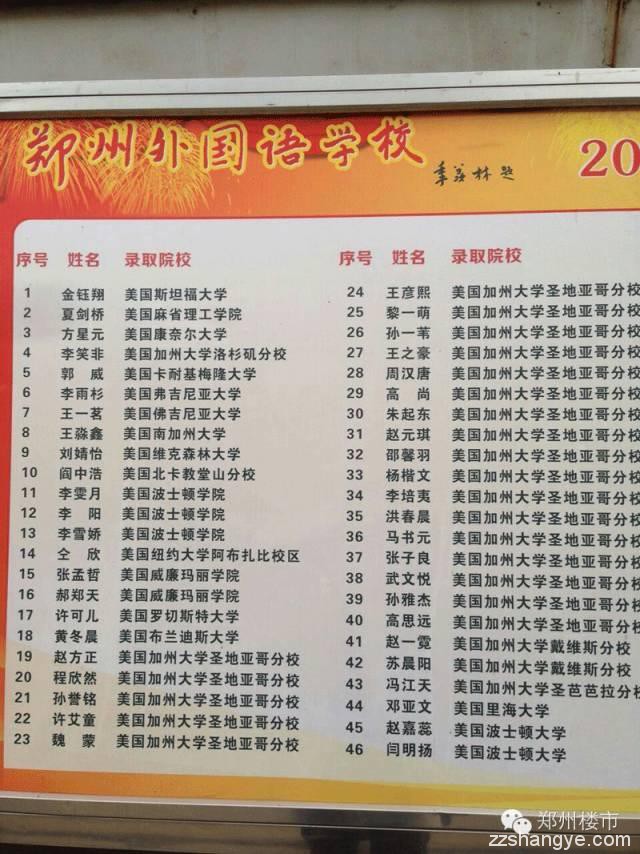 郑州外国语学校 季羡林题 20
序号 姓名 录取院校
1 金钰翔 美国斯坦福大学
2 夏剑桥 美国麻省理工学院
3 方星元 美国康奈尔大学
4 李笑非 美国加州大学洛杉矶分校
5 郭 威 美国卡耐基梅隆大学
6 李雨杉 美国弗吉尼亚大学
7 王一茗 美国佛吉尼亚大学
8 王淼鑫 美国南加州大学
9 刘婧怡 美国维克森林大学
10 阎中浩 美国北卡教堂山分校
11 李雯月 美国波士顿学院
12 李 阳 美国波士顿学院
13 李雪娇 美国波士顿学院
14 仝 欣 美国纽约大学阿布扎比校区
15 张孟哲 美国威廉玛丽学院
16 郝郑天 美国威廉玛丽学院
17 许可儿 美国罗切斯特大学
18 黄冬晨 美国布兰迪斯大学
19 赵方正 美国加州大学圣地亚哥分校
20 程欣然 美国加州大学圣地亚哥分校
21 孙誉铭 美国加州大学圣地亚哥分校
22 许艾童 美国加州大学圣地亚哥分校
23 魏 蒙 美国加州大学圣地亚哥分校
序号 姓名 录取院校
24 王彦熙 美国加州大学圣地亚哥分校
25 黎一萌 美国加州大学圣地亚哥分校
26 孙一苇 美国加州大学圣地亚哥分校
27 王之豪 美国加州大学圣地亚哥分校
28 周汉唐 美国加州大学圣地亚哥分校
29 高 尚 美国加州大学圣地亚哥分校
30 朱起东 美国加州大学圣地亚哥分校
31 赵元琪 美国加州大学圣地亚哥分校
32 邵馨羽 美国加州大学圣地亚哥分校
33 杨楷文 美国加州大学圣地亚哥分校
34 李培夷 美国加州大学圣地亚哥分校
35 洪春晨 美国加州大学圣地亚哥分校
36 马书元 美国加州大学圣地亚哥分校
37 张子良 美国加州大学圣地亚哥分校
38 武文悦 美国加州大学圣地亚哥分校
39 孙雅杰 美国加州大学圣地亚哥分校
40 高思远 美国加州大学圣地亚哥分校
41 赵一霓 美国加州大学戴维斯分校
42 苏晨阳 美国加州大学戴维斯分校
43 冯江天 美国加州大学圣芭芭拉分
44 邓亚文 美国里海大学
45 赵嘉蕊 美国波士顿大学
46 闫明扬 美国波士顿大学
郑州楼市
zzshangye.com